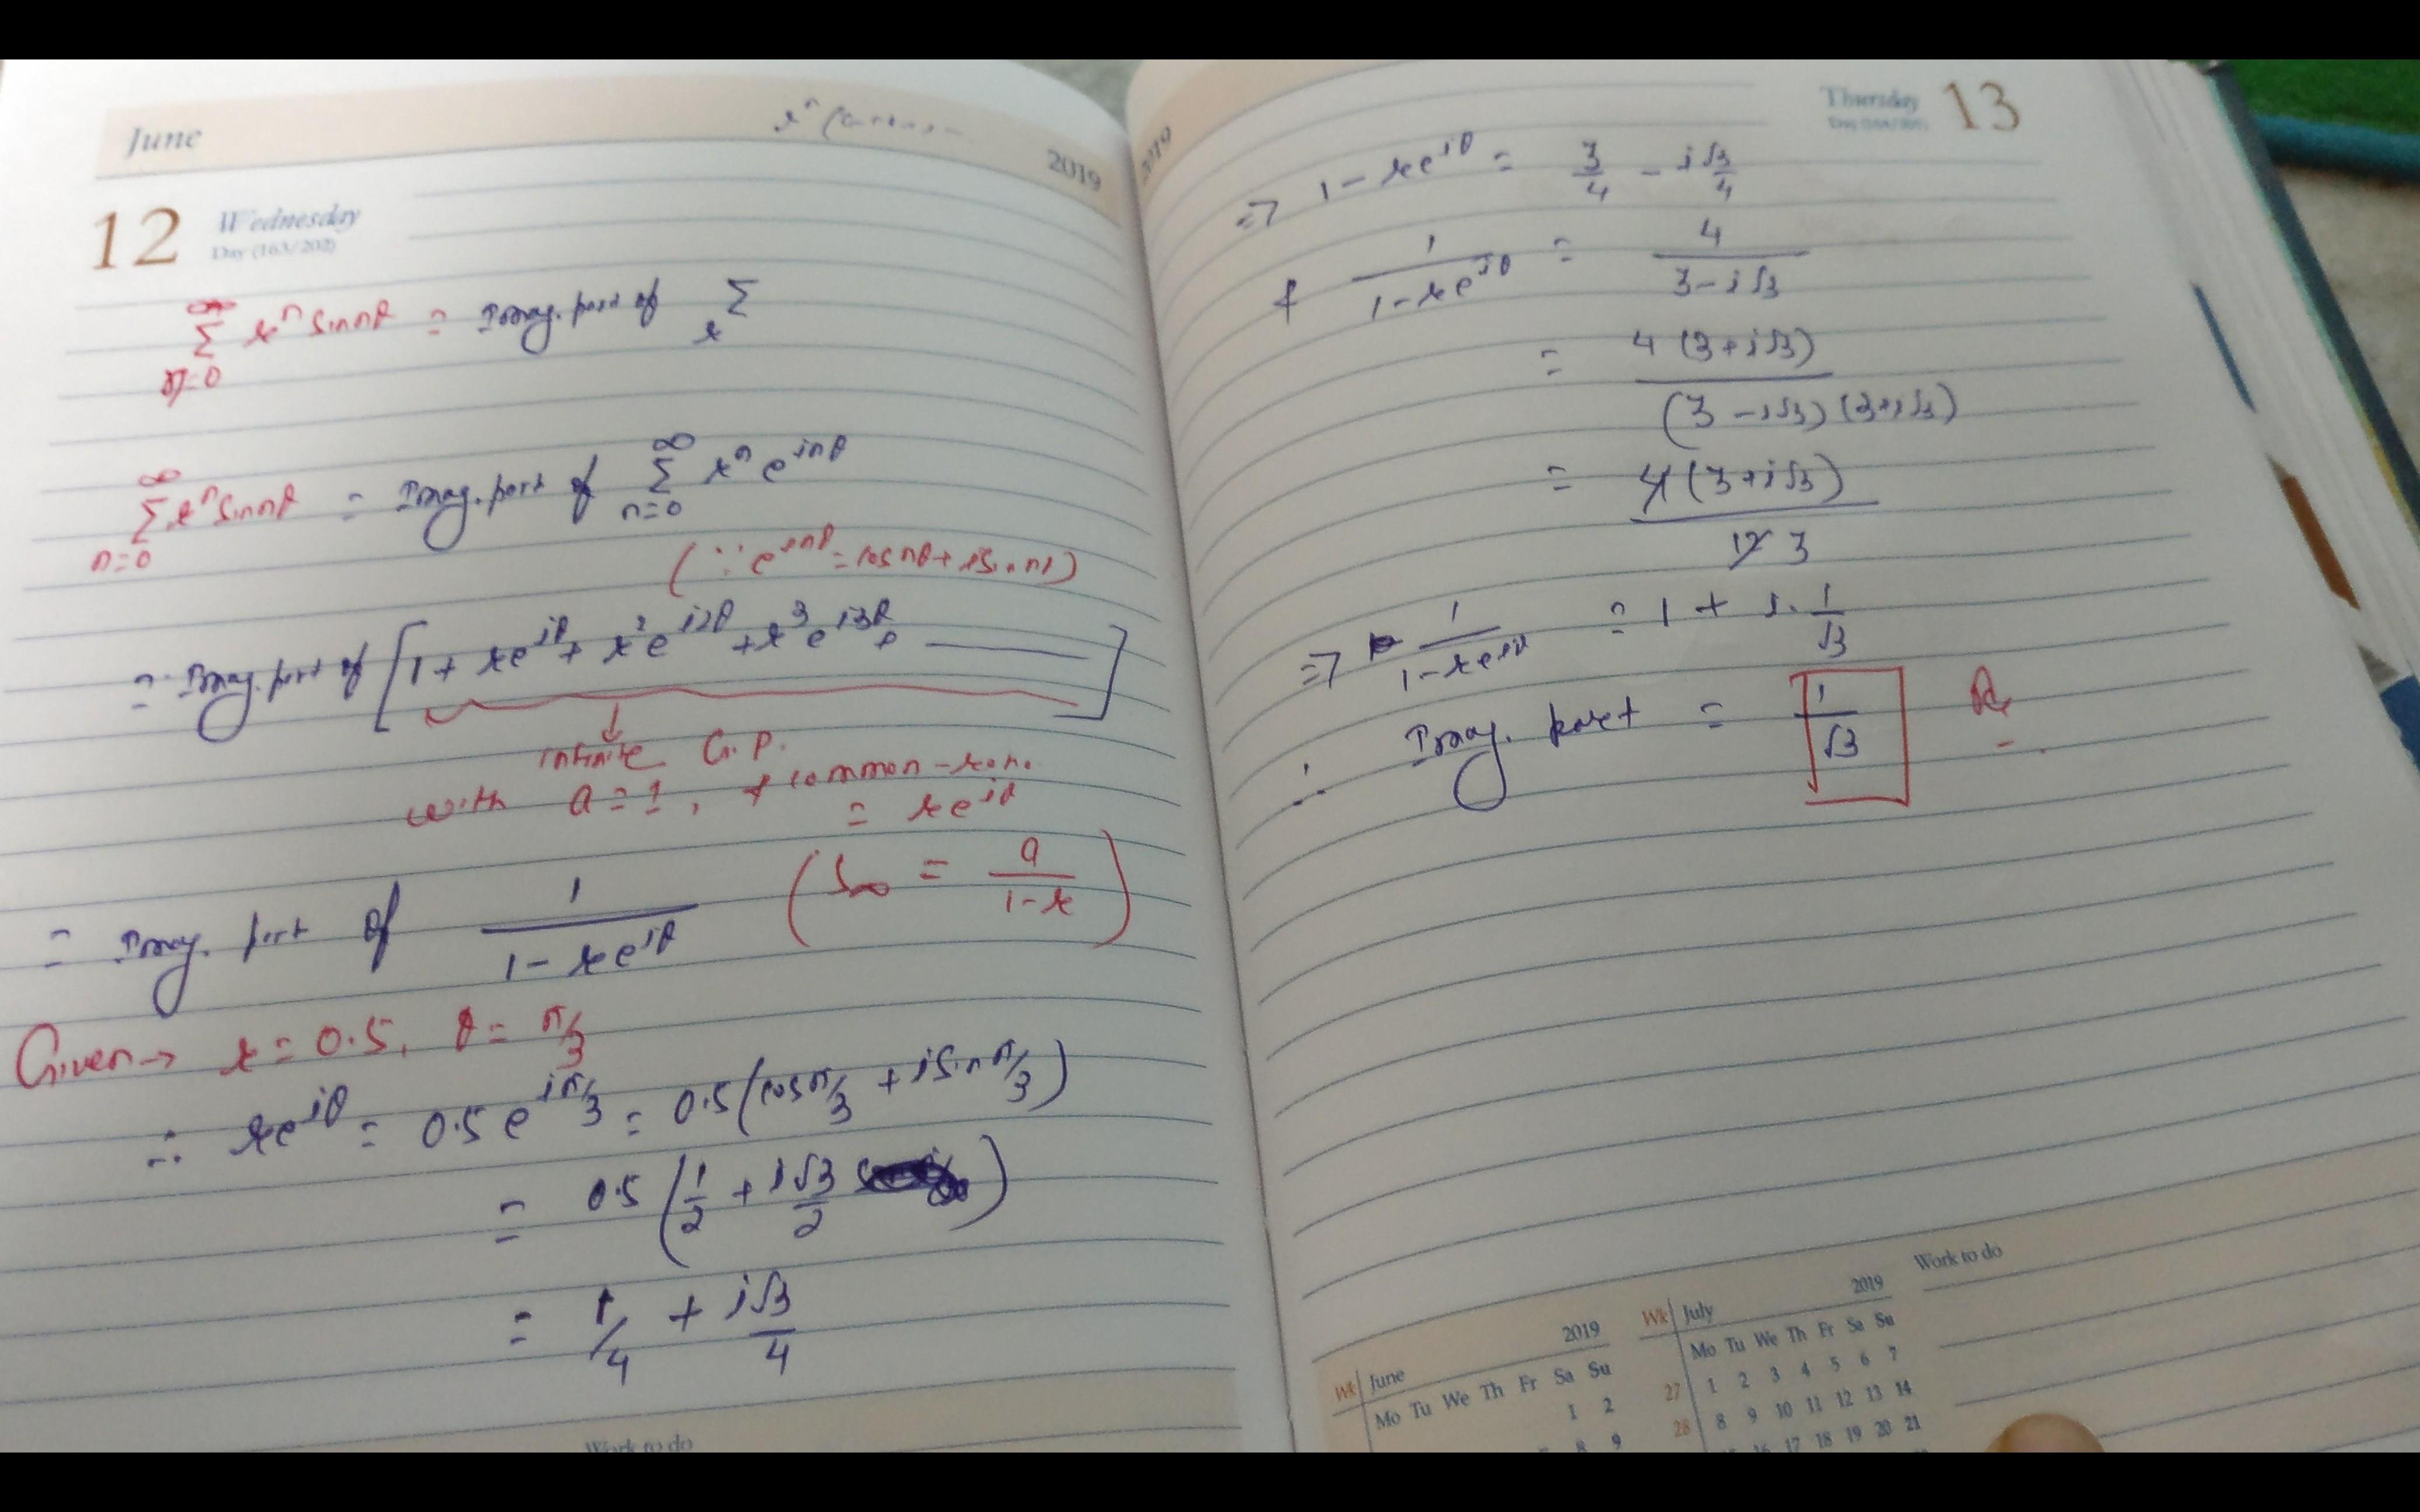 June
2019
12 Wednesday
Day (163/202)
∞
Σ rⁿ sin nθ = Imag. part of Σ
n=0 r
∞ ∞
Σ rⁿ sin nθ = Imag. part of Σ rⁿ e^{inθ}
n=0 n=0
(∵ e^{inθ} = cos nθ + i sin nθ)
= Imag. part of [1 + re^{iθ} + r²e^{i2θ} + r³e^{i3θ} + ———]
↓
infinite G.P.
with a = 1, & common-ratio
= re^{iθ}
= Imag. part of 1/(1 - re^{iθ}) (S∞ = a/(1-r))
Given → r = 0.5, θ = π/3
∴ re^{iθ} = 0.5 e^{iπ/3} = 0.5 (cos π/3 + i sin π/3)
= 0.5 (1/2 + i√3/2)
= 1/4 + i√3/4
Work to do
2019
Thursday 13
⇒ 1 - re^{iθ} = 3/4 - i√3/4
& 1/(1 - re^{iθ}) = 4/(3 - i√3)
= 4(3 + i√3)/((3 - i√3)(3 + i√3))
= 4(3 + i√3)/12 3
⇒ 1/(1 - re^{iθ}) = 1 + i·1/√3
∴ Imag. part = 1/√3
Work to do
Wk June 2019
Mo Tu We Th Fr Sa Su
1 2
8 9
Wk July 2019
Mo Tu We Th Fr Sa Su
27 1 2 3 4 5 6 7
28 8 9 10 11 12 13 14
16 17 18 19 20 21